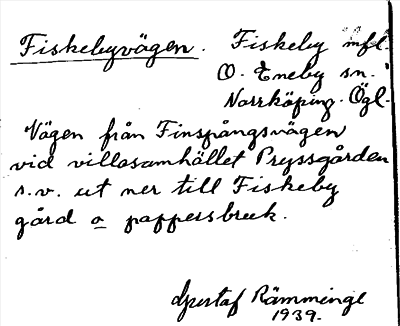 Fiskebyvägen. Fiskeby mfl.
Ö. Eneby sn.
Norrköping. Ögl.
Vägen från Finspångsvägen
vid villasamhället Pryssgården
s.v. ut ner till Fiskeby
gård o pappersbruk.
Gustaf Rämminge
1939.